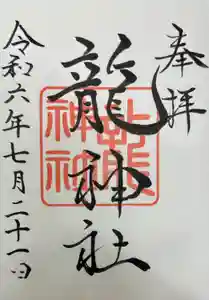 奉拝
龍神社
令和六年七月二十一日